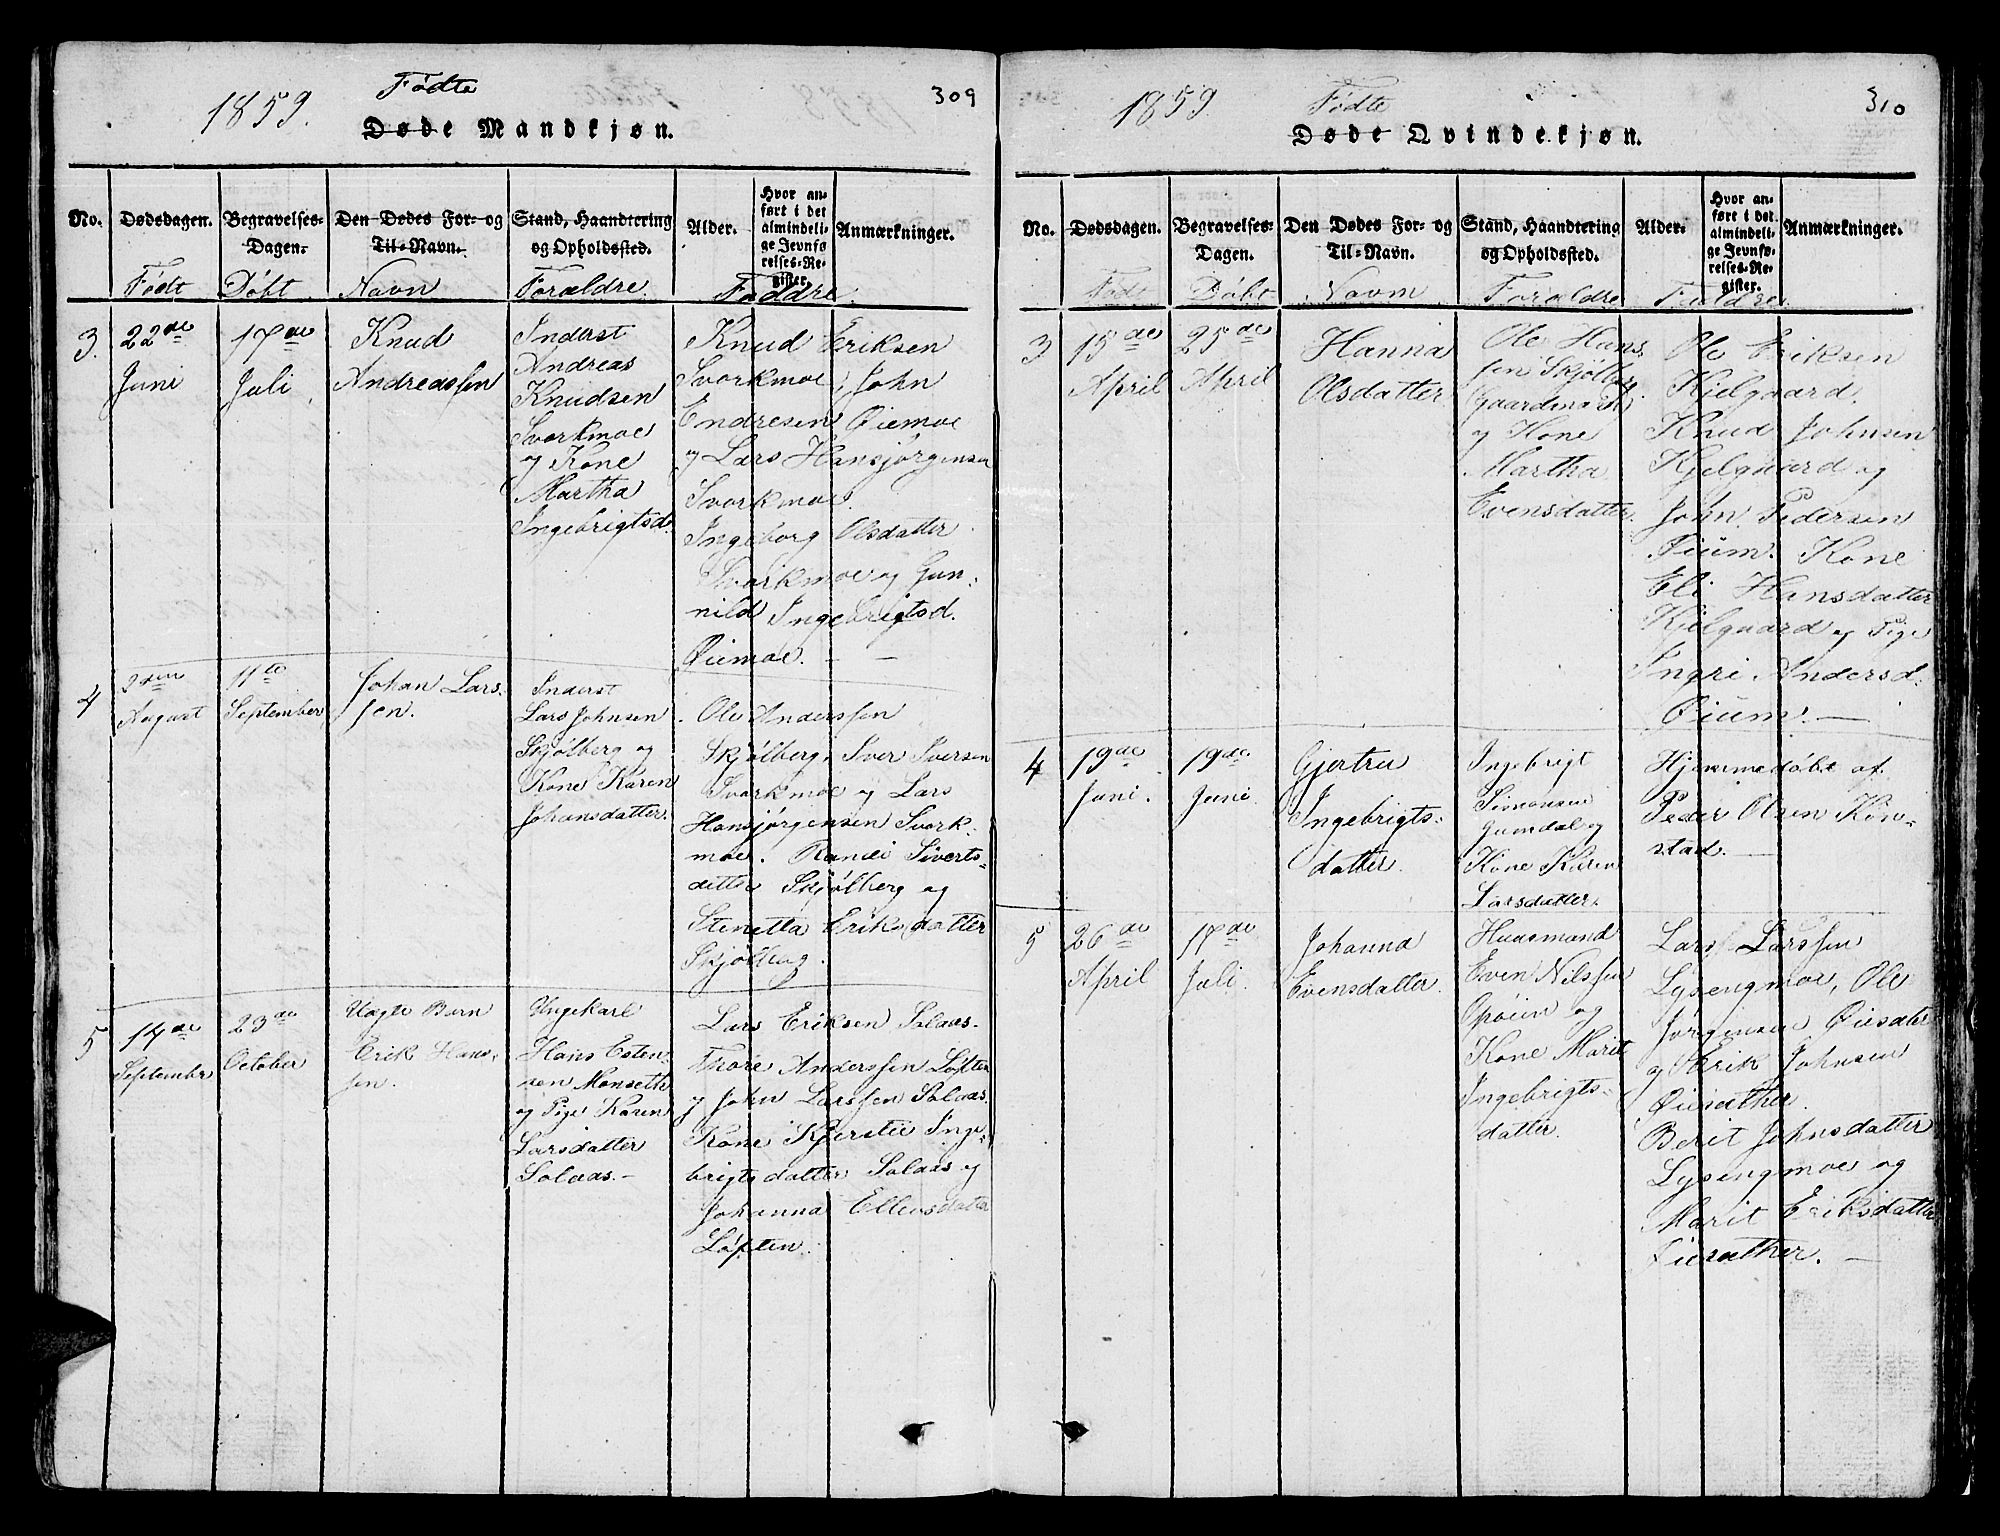 1859.
Fødte
309
Døde Mandkjøn.
No.
Dødsdagen.
Begravelses-
Dagen.
Den Dødes For- og
Til-Navn.
Stand, Haandtering
og Opholdssted.
Alder.
Hvor an-
ført i det
almindeli-
ge Jevnfø-
relses-Re-
gister.
Anmærkninger.
Født
Døbt
Navn
Forældre.
Faddre.
3.
22de
Juni
17de
Juli
Knud
Andreassen
Inderst
Andreas
Knudsen
Svorkmoe
og Kone
Martha
Ingebrigtsd.
Knud Eriksen
Svorkmoe, John
Endresen Øiemoe
og Lars Hansjørgensen
Svorkmoe.
Ingeborg Olsdatter
Svorkmoe og Gun-
nild Ingebrigtsd.
Øiemoe. — —
4
2den
August
11te
September
Johan Lars-
sen.
Inderst
Lars Johnsen
Skjølberg og
Kone Karen
Johansdatter.
Ole Anderssen
Skjølberg, Iver Iversen
Svorkmoe og Lars
Hansjørgensen Svork-
moe. Randi Siverts-
datter Skjølberg og
Stenetta Eriksdatter
Skjølberg.
5
14de
September
23de
October
Uægte Barn
Erik Hans-
sen.
Ungekarl
Hans Esten-
sen Monseth
og Pige Karen
Larsdatter
Solaas. —
Lars Eriksen Solaas.
Thore Anderssen Løften
og John Larssen Solaas.
Kone Kjerstie Inge-
brigtsdatter Solaas og
Johanna Ellensdatter
Løften.
1859.
Fødte
310
Døde Qvindekjøn.
No.
Dødsdagen.
Begravelses-
Dagen.
Den Dødes For- og
Til-Navn.
Stand, Haandtering
og Opholdssted.
Alder.
Hvor an-
ført i det
almindeli-
ge Jevnfø-
relses-Re-
gister.
Anmærkninger.
Født
Døbt
Navn
Forældre
Faddre.
3
15de
April
25de
April
Hanna
Olsdatter
Ole Hans-
sen Skjølberg
Gaardmand
og Kone
Martha
Evensdatter.
Ole Eriksen
Kjelgaard.
Knud Johnsen
Kjelgaard og
John Pedersen
Øium. Kone
Eli Hansdatter
Kjelgaard og Pige
Ingri Andersd.
Øium. —
4
19de
Juni.
19de
Juni.
Gjertru
Ingebrigts-
datter.
Ingebrigt
Simonsen
Gumdal og
Kone Karen
Larsdatter.
Hjemmedøbt af
Peder Olsen Kon-
stad. —
5
26de
April
17de
Juli.
Johanna
Evensdatter.
Huusmand
Even Nilssen
og
Kone Marit
Ingebrigts-
datter.
Lars Larssen
Lysengmoe, Ole
Jørgensen
og Erik Johnsen
Øiesæther.
Berit Johnsdatter
Lysengmoe og
Marit Eriksdatter
Øiesæther. —